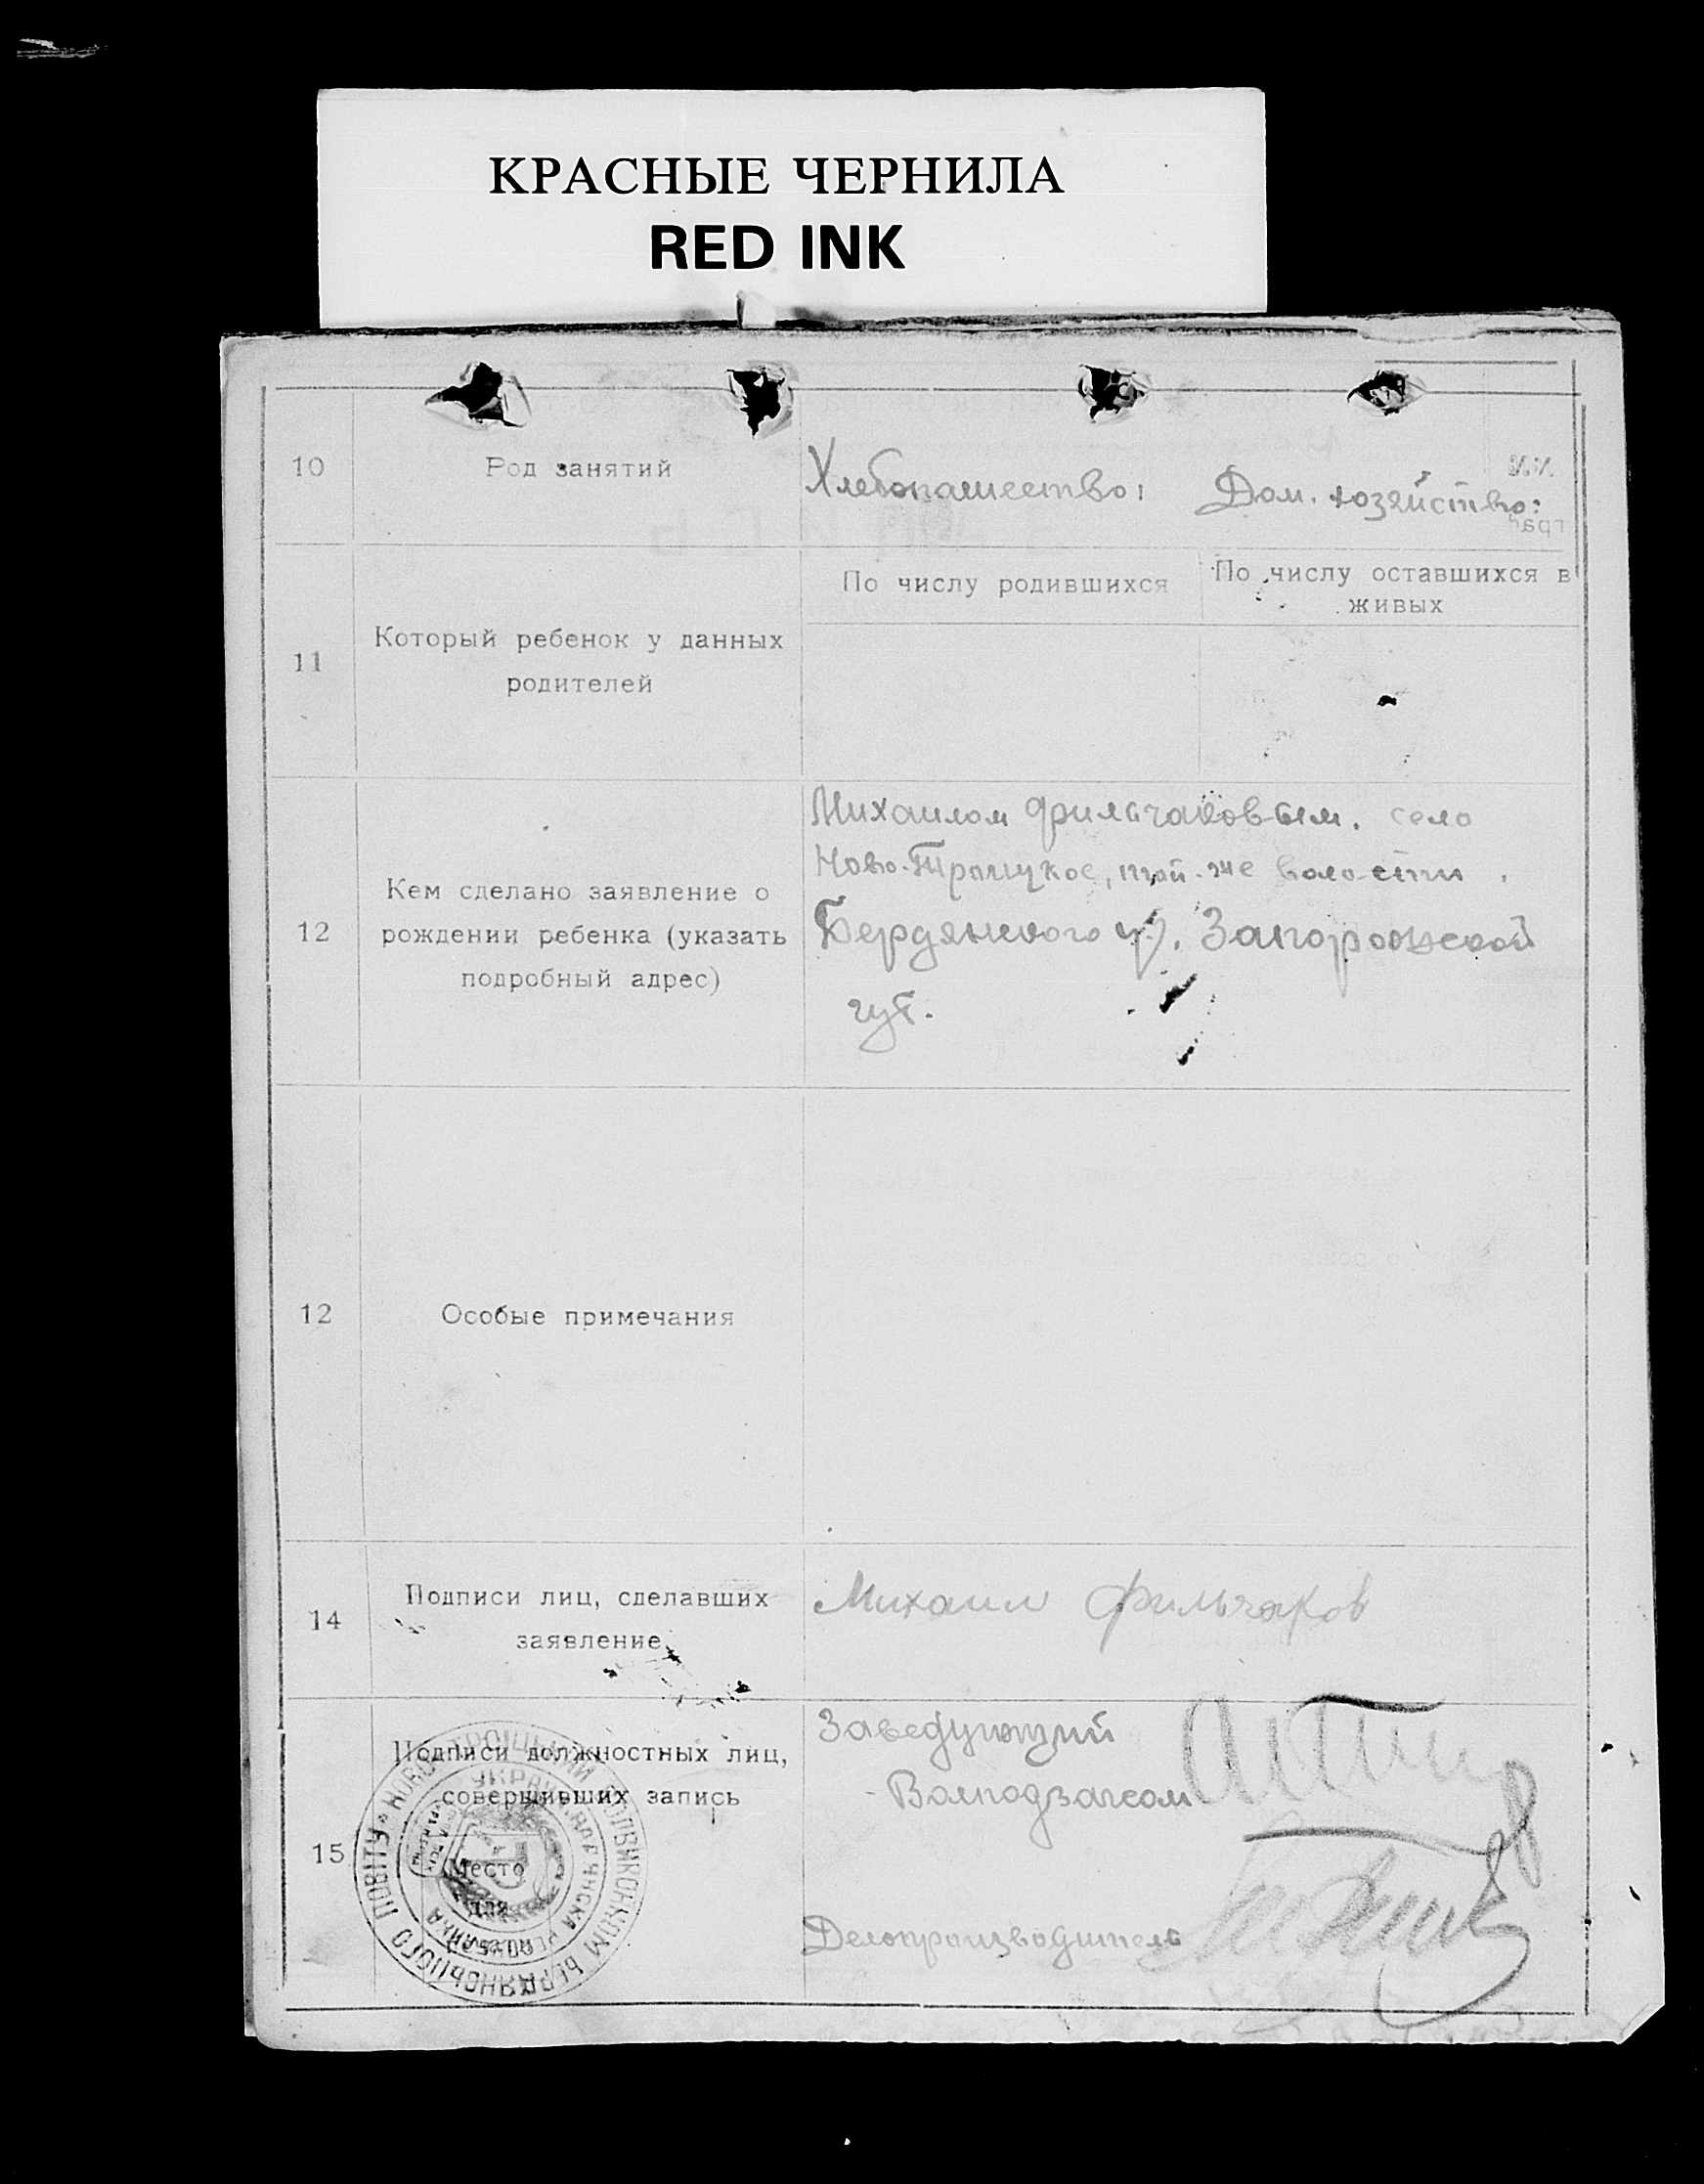 КРАСНЫЕ ЧЕРНИЛА
RED INK
10 Род занятий Хлебопашество: Дом. хозяйство:
По числу родившихся По числу оставшихся в
живых
11 Который ребенок у данных
родителей
Михаилом Фильчаковым. село
Ново-Троицкое, той-же волости.
12 Кем сделано заявление о
рождении ребенка (указать
подробный адрес)
Бердянского у. Запорожской
губ.
12 Особые примечания
14 Подписи лиц, сделавших
заявление
Михаил Фильчаков
15 Подписи должностных лиц,
совершивших запись
Заведующий
Волподзагсом
Место
для
Делопроизводитель
НОВО-ТРОЇЦЬКИЙ ВОЛВИКОНКОМ БЕРДЯНСЬКОГО ПОВІТУ